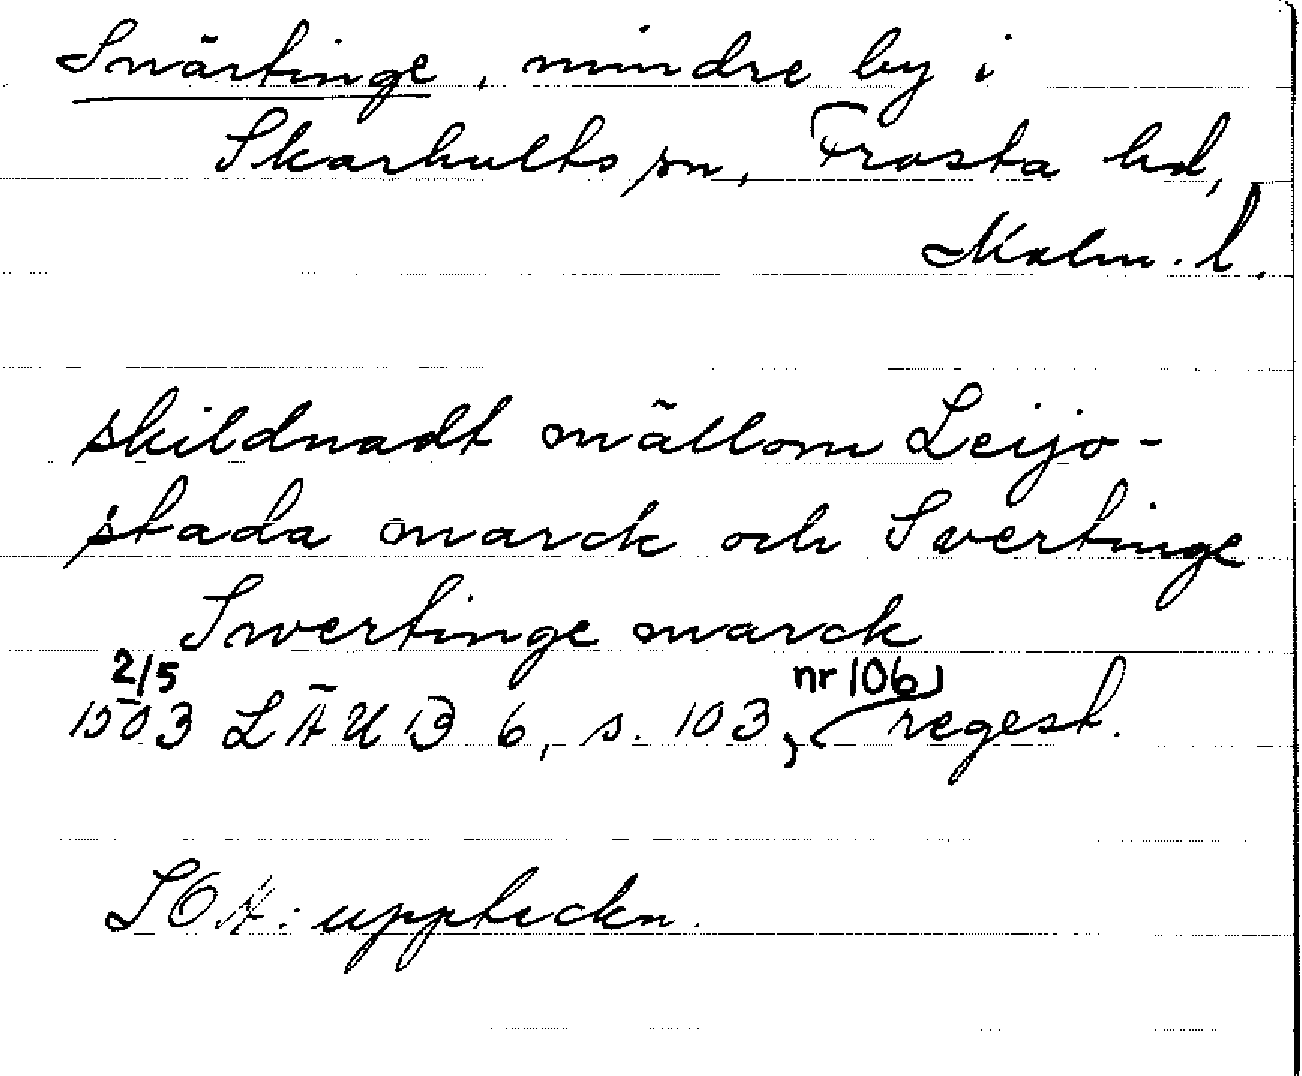 Snärtinge, mindre by i
Skarhults sn, Frosta hd,
Malm. l.
skildnadt mällom Leijo-
stada marck och Svertinge
Snvertinge marck
2/5 nr 106)
1503 LÄUB 6, s. 103, (regest.
SOA: uppteckn.